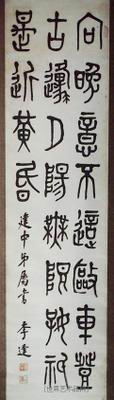 向晚意不適敺車登
古邍夕陽無限好祇
是近黃昏
建中弟屬書 李